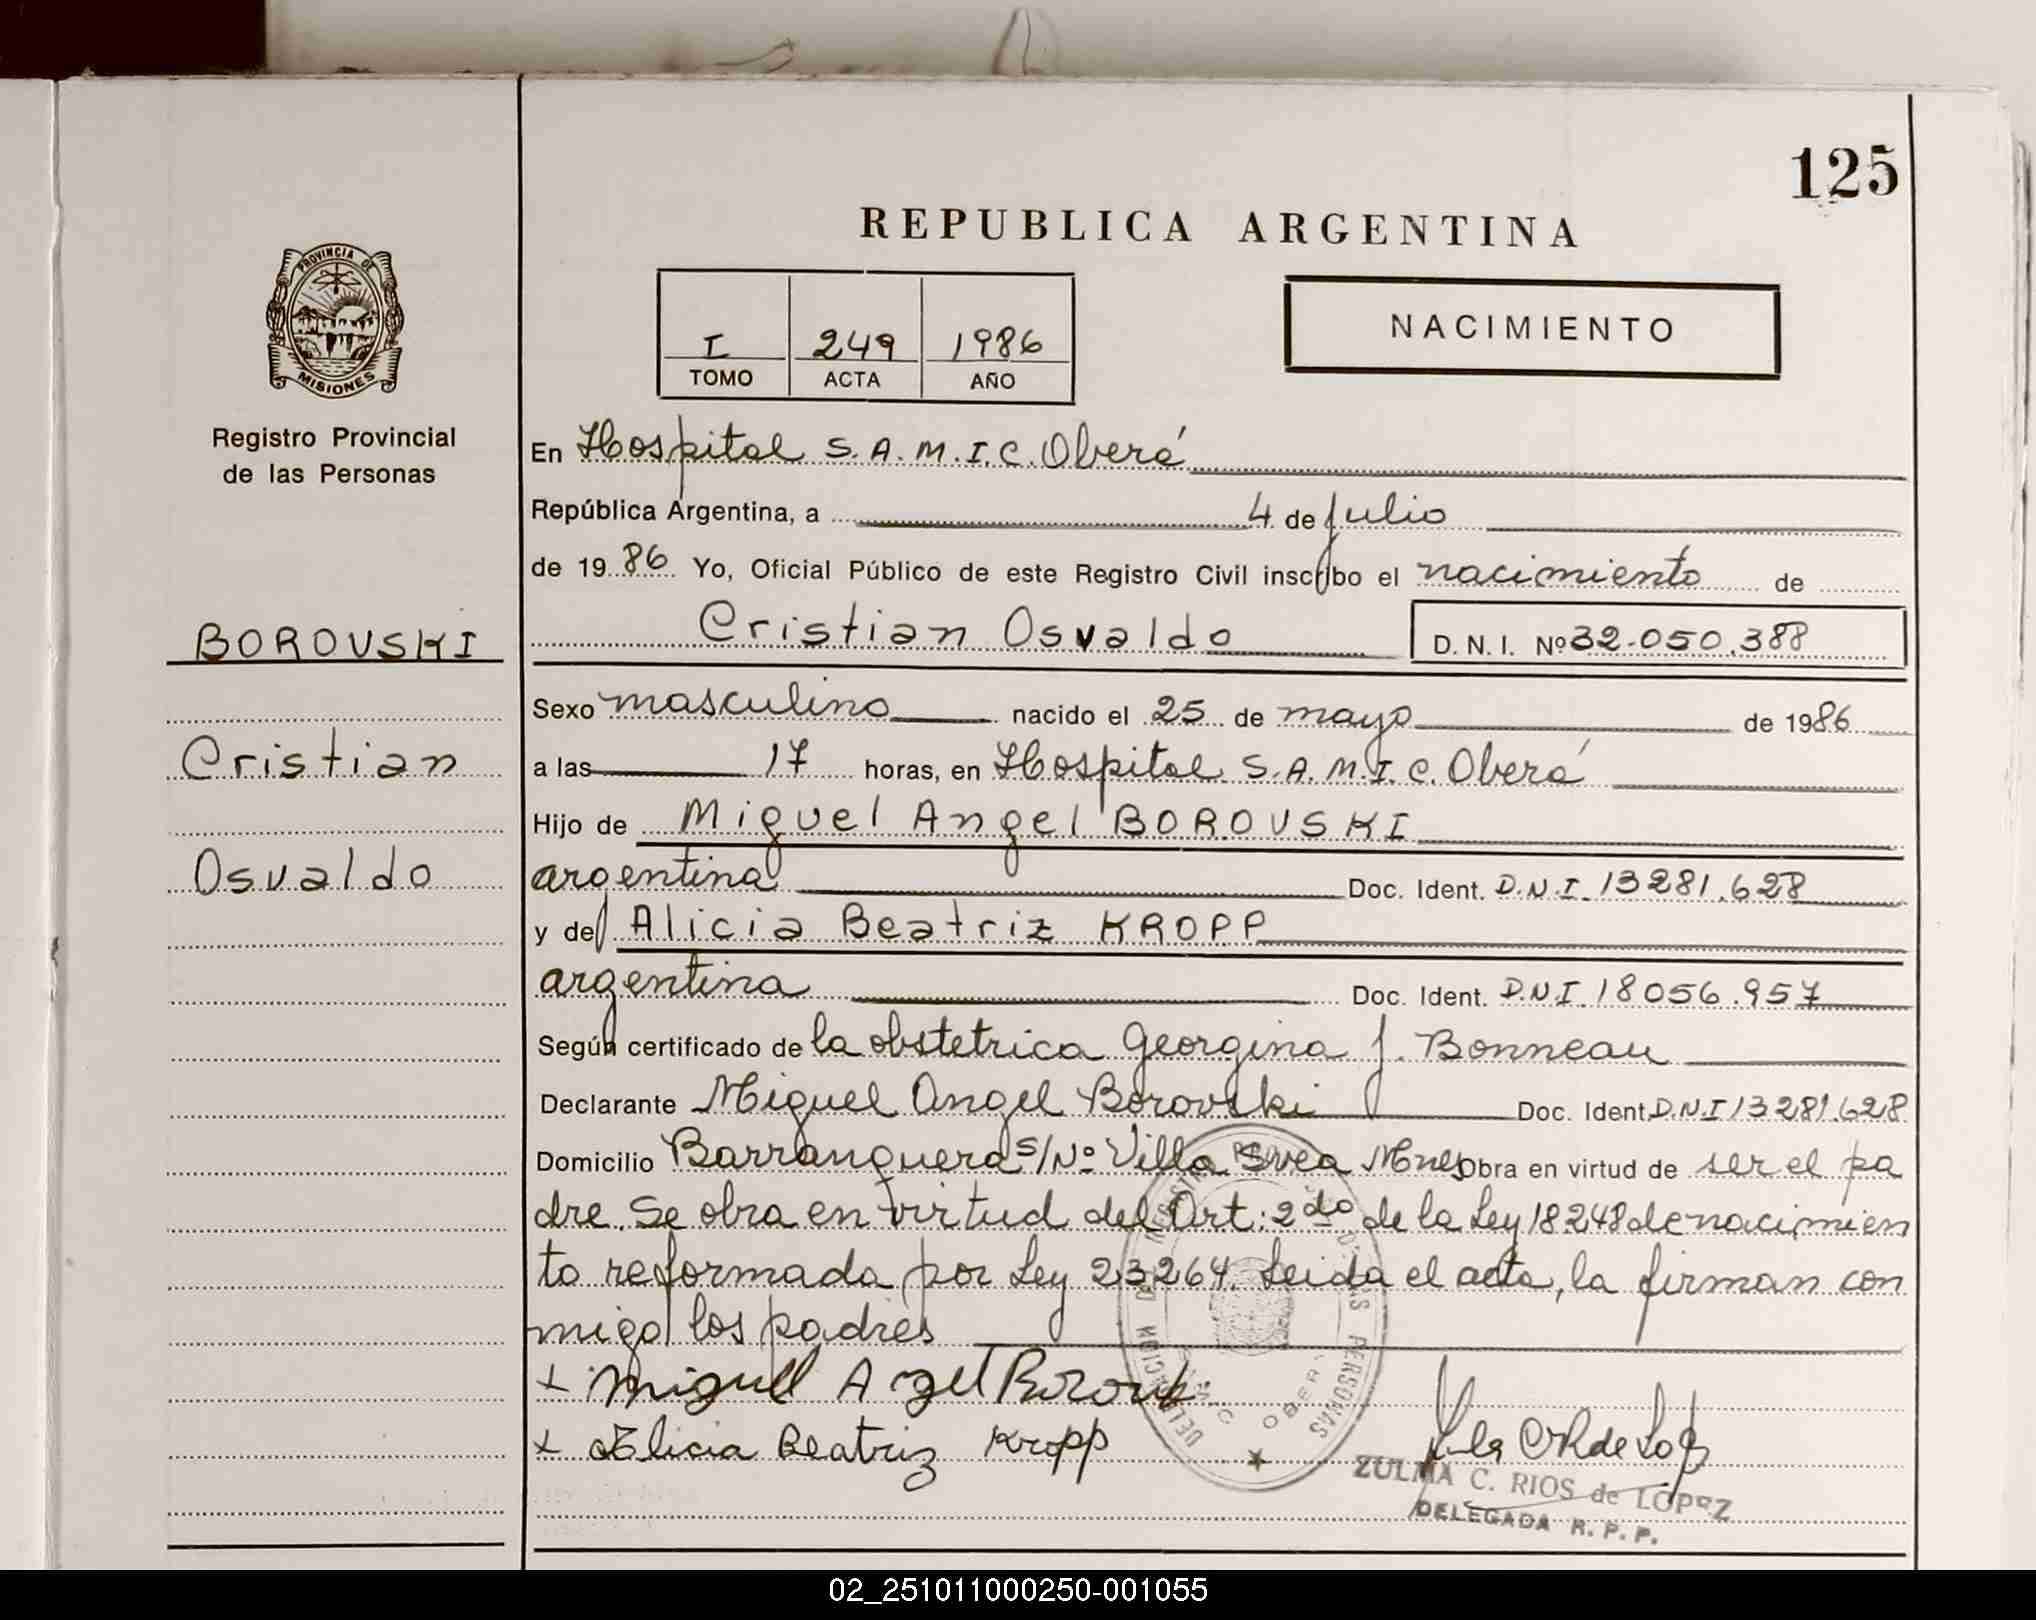 125
REPUBLICA ARGENTINA
PROVINCIA DE
MISIONES
Registro Provincial
de las Personas
I 249 1986
TOMO ACTA AÑO
NACIMIENTO
BOROVSKI
Cristian
Osvaldo
En Hospital S.A.M.I.C. Oberá
República Argentina, a 4 de julio
de 1986 Yo, Oficial Público de este Registro Civil inscribo el nacimiento de
Cristian Osvaldo D.N.I. Nº 32.050.388
Sexo masculino nacido el 25 de mayo de 1986
a las 17 horas, en Hospital S.A.M.I.C. Oberá
Hijo de Miguel Angel BOROVSKI
argentina Doc. Ident. D.N.I. 13281.628
y de Alicia Beatriz KROPP
argentina Doc. Ident. D.N.I 18056.957
Según certificado de la obstetrica Georgina J. Bonneau
Declarante Miguel Angel Borovski Doc. Ident. D.N.I 13281.628
Domicilio Barranquera s/Nº Villa Svea Mnes Obra en virtud de ser el pa
dre. Se obra en virtud del Art: 2do de la Ley 18248 de nacimien
to reformada por Ley 23264. Leida el acta, la firman con
migo los padres
+ Miguel Angel
+ Alicia Beatriz Kropp
PERSONAS
OBERA
ZULMA C. RIOS de LOPEZ
DELEGADA R. P. P.
02_251011000250-001055